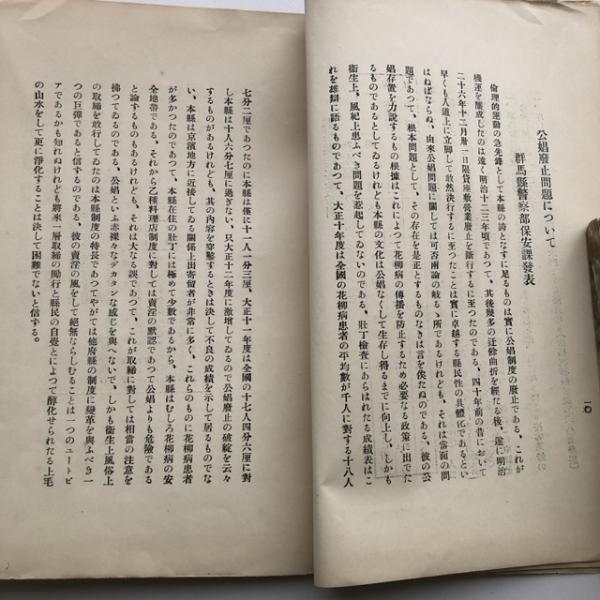 一〇
公娼廢止問題について
群馬縣警察部保安課發表
倫理的運動の急先鋒として本縣の誇となすに足るものは實に公娼制度の廢止である、これが
機運を釀成したのは遠く明治十二三年頃であつて、其後幾多の迂餘曲折を經たる後、遂に明治
二十六年十二月卅一日限貸座敷營業廢止を斷行するに至つたのである、四十年前の昔において
早くも人道上に立脚して敢然決行するに至つたことは實に卓越する縣民性の具體化であるとい
はねばならぬ、由來公娼問題に關しては可否兩論の岐るゝ所であるけれども、それは當面の問
題であつて、根本問題として、その存在を是正とするものなきは言を俟たぬのである、彼の公
娼存置を力說するもの根據はこれによつて花柳病の傳播を防止するため必要なる政策に出でた
るものであるとしてゐるけれども本縣の文化は公娼なくして生存し得るまでに向上し、しかも
衞生上、風紀上患ふべき問題を惹起してゐないのである、壯丁檢査にあらはれたる成績表はこ
れを雄辯に語るものであつて、大正十年度は全國の花柳病患者の平均數が千人に對する十八人
七分二厘であつたのに本縣は僅に十一人一分三厘、大正十一年度は全國の十七人四分六厘に對
し本縣は十人六分七厘に過ぎない、只大正十二年度に激增してゐるので公娼廢止の破綻を云々
するものがあるけれども、其の內容を穿鑿するときは決して不良の成績を示して居るものでな
い、本縣は京濱地方に近接してゐる關係上出寄留者が非常に多く、これらのものに花柳病患者
が多かつたのであつて、本縣在住の壯丁には極めて少數であるから、本縣はむしろ花柳病の安
全地帶である、それから乙種料理店制度に對しては賣淫の默認であつて公娼よりも危險である
と論ずるものもあるけれども、それは大なる誤であつて、これが取締に對しては相當の注意を
拂つてゐるのである、公娼といふ赤裸々なデカタンな感じを與へないで、しかも衞生上風俗上
の取締を敢行してゐたのは本縣制度の特長であつてやがては他府縣の制度に變革を與ふべき一
つの巨彈であると信ずるのである、彼の賣淫の風をして絕無ならしむることは一つのユートピ
アであるかも知れぬけれども將來一層取締の勵行と縣民の自覺とによつて醇化せられたる上毛
の山水をして更に淨化することは決して困難でないと信する。